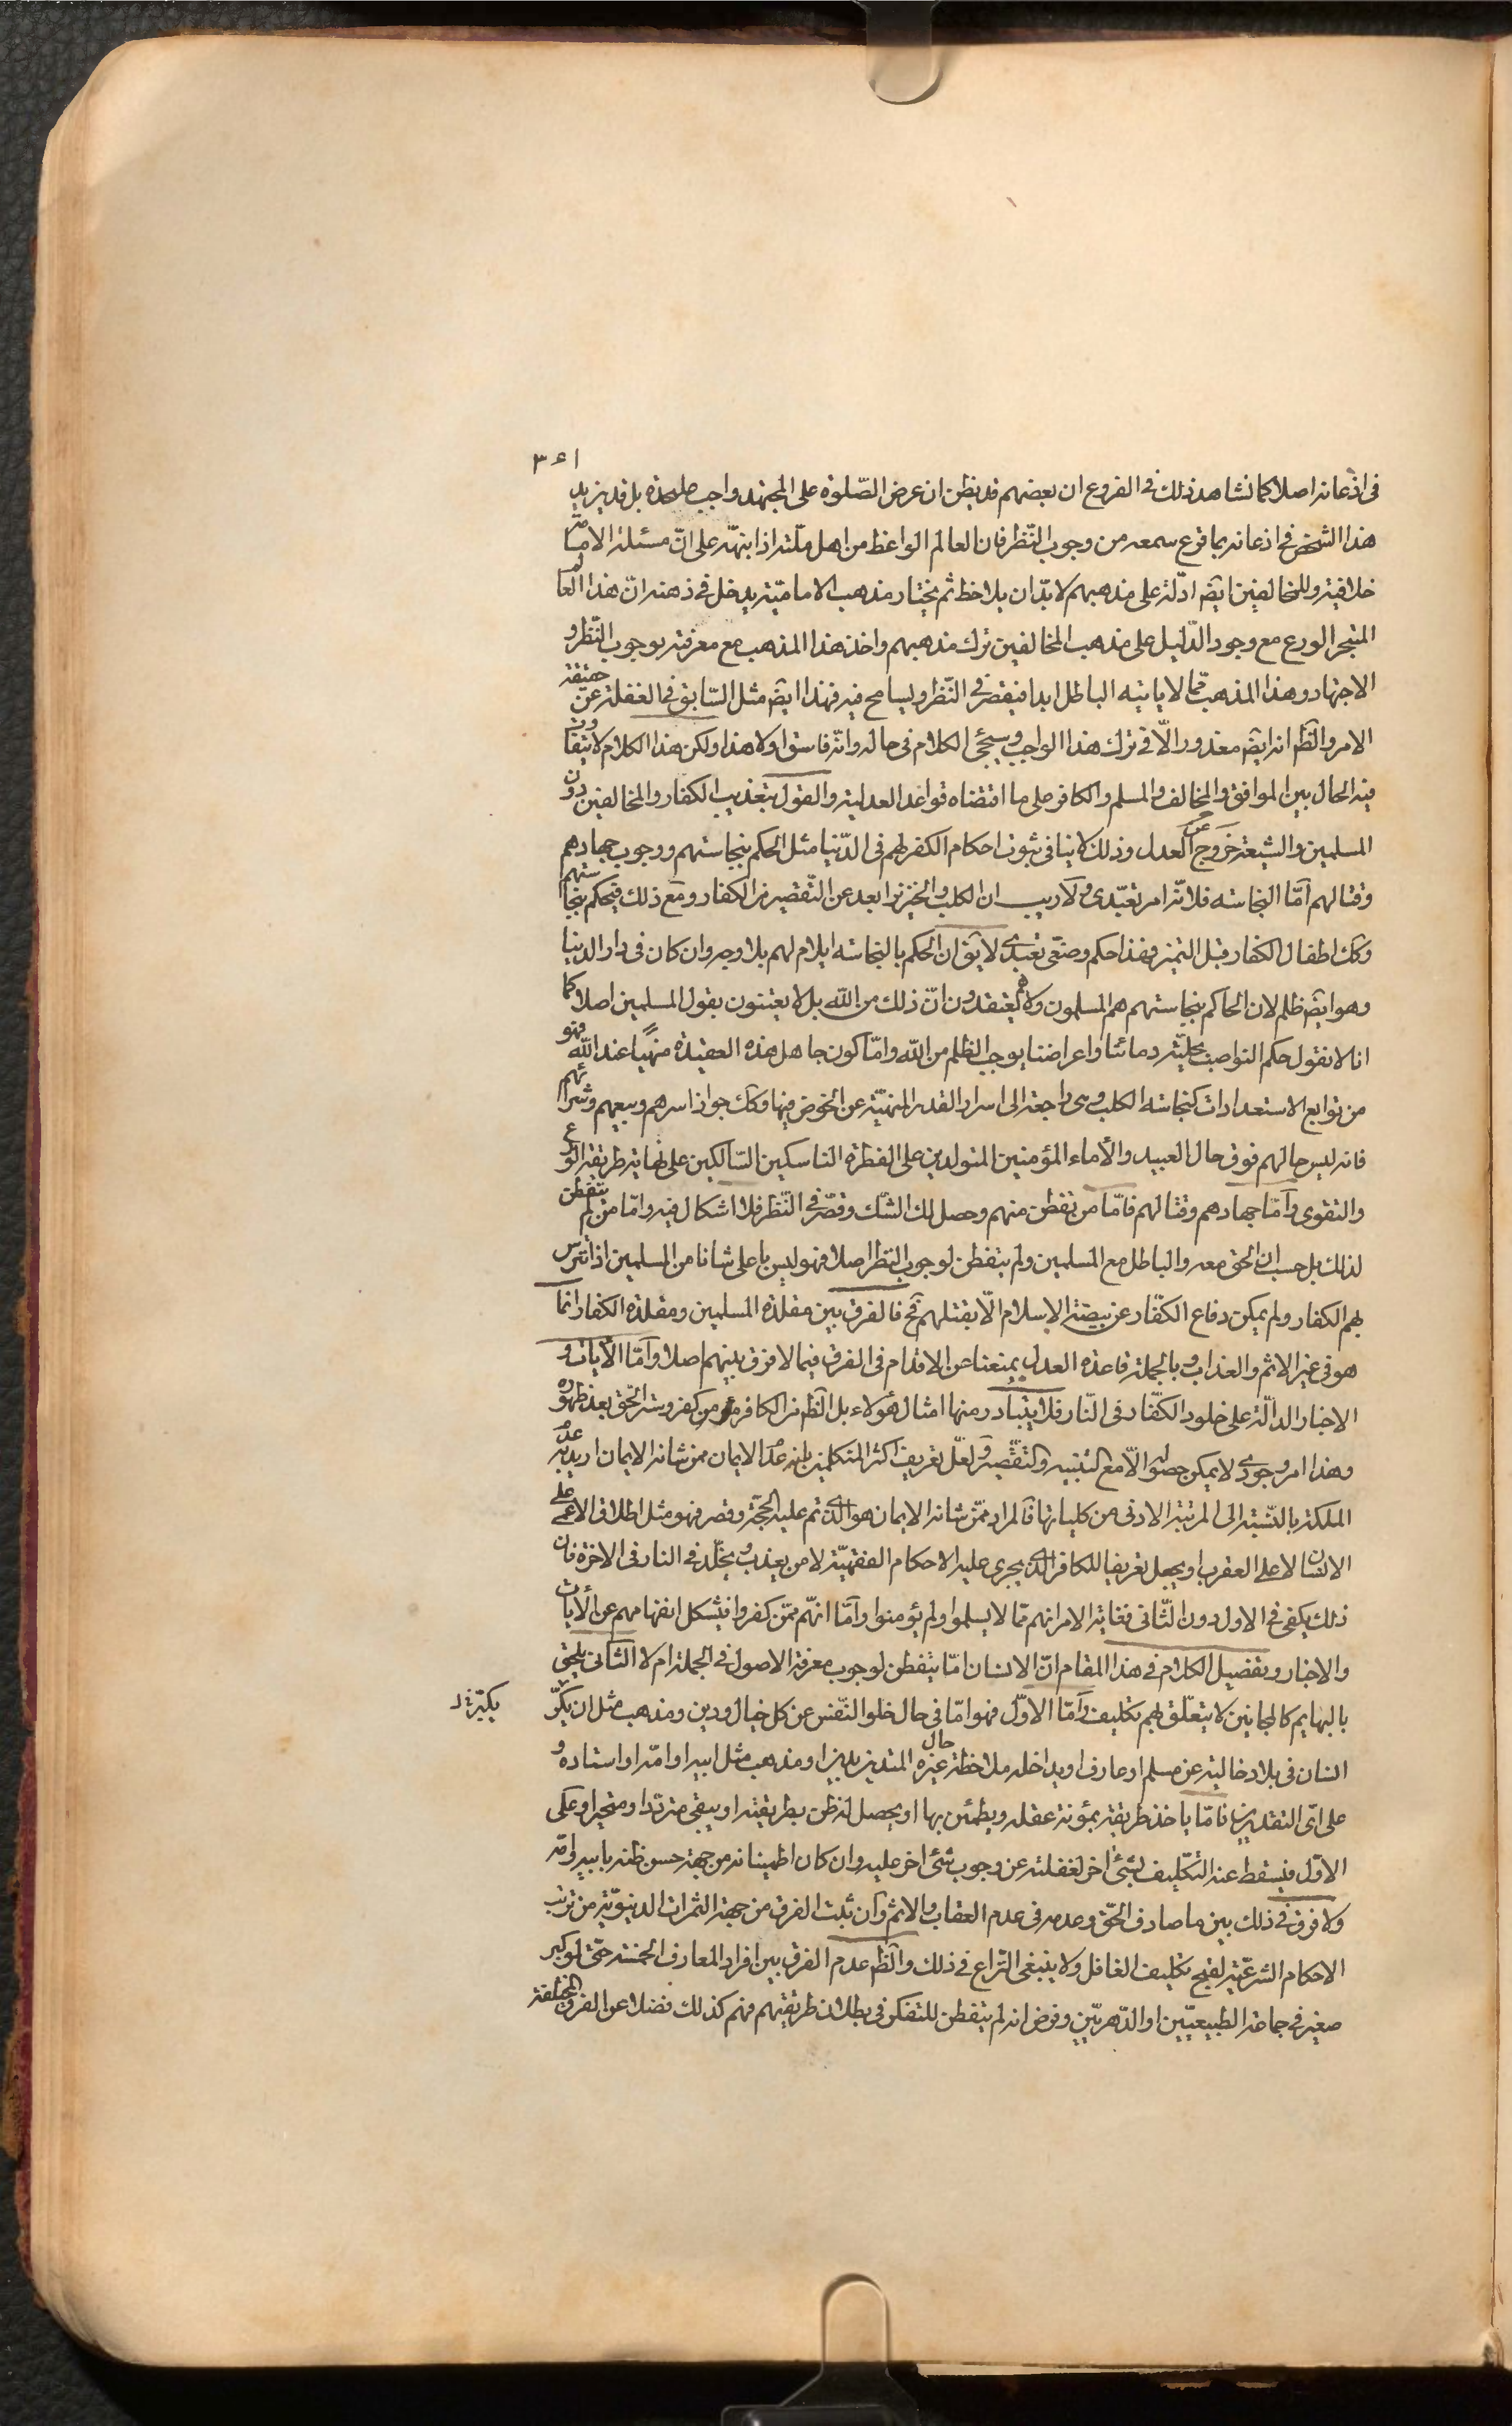 ٣٤١
فى اذعانه اصلا كما نشاهد ذلك فى الفروع ان بعضهم قد يظن ان عرض الصّلوة على المجتهد واجب عليحدة بل قد يزيد
هذا الشخص فى اذعانه بما قرع سمعه من وجوب النّظر فان العالم الواعظ من اهل ملّته اذا ينبّه على انّ مسئلة الامامة
خلافية وللمخالفين ايضا ادّلة على مذهبهم لا بدّ ان يلاحظ ثم يختار مذهب الامامّية يدخل فى ذهنه انّ هذا العالم
المتبحر الورع مع وجود الدّليل على مذهب المخالفين ترك مذهبهم واخذ هذا المذهب مع معرفته بوجوب النّظر و
الاجتهاد وهذا المذهب ممّا لا ياتيه الباطل ابدا فيقصّر فى النّظر ويسامح فيه فهذا ايضا مثل السّابق فى الغفلة عن حقيقة
الامر والظّ انه ايضا معذور الّا فى ترك هذا الواجب وسيجئ الكلام فى حاله وانّه فاسق او لا هذا ولكن هذا الكلام لا يتفاوت
فيه الحال بين الموافق والمخالف والمسلم والكافر على ما اقتضاه قواعد العدلية والقول بتعذيب الكفار والمخالفين دون
المسلمين والشيعة خروج عن العدل وذلك لا ينافى ثبوت احكام الكفر لهم فى الدّنيا مثل الحكم بنجاستهم ووجوب جهادهم
وقتالهم امّا النجاسة فلانّه امر تعبّدى ولا ريب ان الكلب والخنزير ابعد عن التّقصير من الكفار ومع ذلك فيحكم بنجاستهم
وكك اطفال الكفار قبل التميز فهذا حكم وضعّى تعبّدى لا يق ان الحكم بالنجاسة ايلام لهم بلا وجه وان كان فى دار الدنيا
وهو ايضا ظلم لان الحاكم بنجاستهم هم المسلمون ولا هم يعتقدون انّ ذلك من الله بل لا يعتنون بقول المسلمين اصلا كما
انا لا نقول حكم النواصب بحليّة دمائنا واعراضنا يوجب الظلم من الله وامّا كون جاهل هذه العقيدة منهيّا عند الله فهو
من توابع الاستعدادات كنجاسة الكلب وهى راجعة الى اسرار القدر المنهيّة عن الخوض فيها وكك جواز اسرهم وبيعهم وشرائهم
فانه ليس حالهم فوق حال العبيد والأماء المؤمنين المتولدين على الفطرة الناسكين السّالكين على نهاية طريقة الورع
والتقوى وامّا جهادهم وقتالهم فامّا من تفطن منهم وحصل لك الشّك وقصّر فى النّظر فلا اشكال فيه وامّا من لم يتفطن
لذلك بل حسب ان الحق معه والباطل مع المسلمين ولم يتفطن لوجوب النظر اصلا فهو ليس باعلى شانا من المسلمين اذا تترس
بهم الكفار ولم يمكن دفاع الكفّار عن بيضة الاسلام الّا بقتلهم فح فالفرق بين مقلدة المسلمين ومقلدة الكفار انما
هو فى غير الاثم والعذاب وبالجملة قاعدة العدل يمنعنا عن الاقدام فى الفرق فيما لا فرق بينهم اصلا وامّا الآيات و
الاخبار الدالّة على خلود الكفّار فى النّار فلا يتبادر منها امثال هؤلاء بل الظّ من الكافر هو من كفر وستر الحّق بعد ظهوره
وهذا امر وجودى لا يمكن حصوله الّا مع التنبيه والتّقصير ولعلّ تعريف اكثر المتكلمين بانه عدم الايمان ممن شانه الايمان اريد به عدم
الملكة بالنّسبة الى المرتبة الادنى من كلياتها فالمراد ممّن شانه الايمان هو الّذى تم عليه الحجّة وقصر فهو مثل اطلاق الاعمى على
الانسان لا على العقرب او يجعل تعريفا للكافر الّذى يجرى عليه الاحكام الفقهيّة لا من يعذب ويخلّد فى النار فى الاخرة فان
ذلك يكفى فى الاول دون الثّانى فغاية الامر انهم ممّا لا يسلموا ولم يؤمنوا وامّا انّهم ممّن كفروا فيشكل انفهامهم عن الآيات
والاخبار وتفضيل الكلام فى هذا المقام انّ الانسان امّا يتفطن لوجوب معرفة الاصول فى الجملة ام لا الثانى يلحق
بالبهايم كالمجانين لا يتعلّق بهم تكليف وامّا الاوّل فهو امّا فى حال خلو النّفس عن كل خيال ودين ومذهب مثل ان يكبّر
يكبّر خ د
انسان فى بلاد خالية عن مسلم او عارف او يداخله ملاحظة حال غيره المتدين بدين او مذهب مثل ابيه او امّه او استاده و
على اىّ التقديرين فامّا ياخذ طريقة بمؤنة عقله ويطمئن بها او يحصل له ظن بطريقته او يبقى متردّدا ومتحيرا وعلى
الاوّل فيسقط عنه التّكليف بشئ اخر لغفلته عن وجوب شئ اخر عليه وان كان اطمينانه من جهة حسن ظنه بابيه وامّه
ولا فرق فى ذلك بين ما صادف الحّق وعدمه فى عدم العقاب والاثم وان ثبت الفرق من جهة الثمرات الدنيويّة من ترتب
الاحكام الشرعيّة لقبح تكليف الغافل ولا ينبغى النزاع فى ذلك والظّ عدم الفرق بين افراد المعارف الخمسة حتّى لو كبر
صغير فى جماعة الطبيعيّين او الدّهريّين وفرض انه لم يتفطن للتفكر فى بطلان طريقتهم فهم كذلك فضلا عن الفرق المختلفة